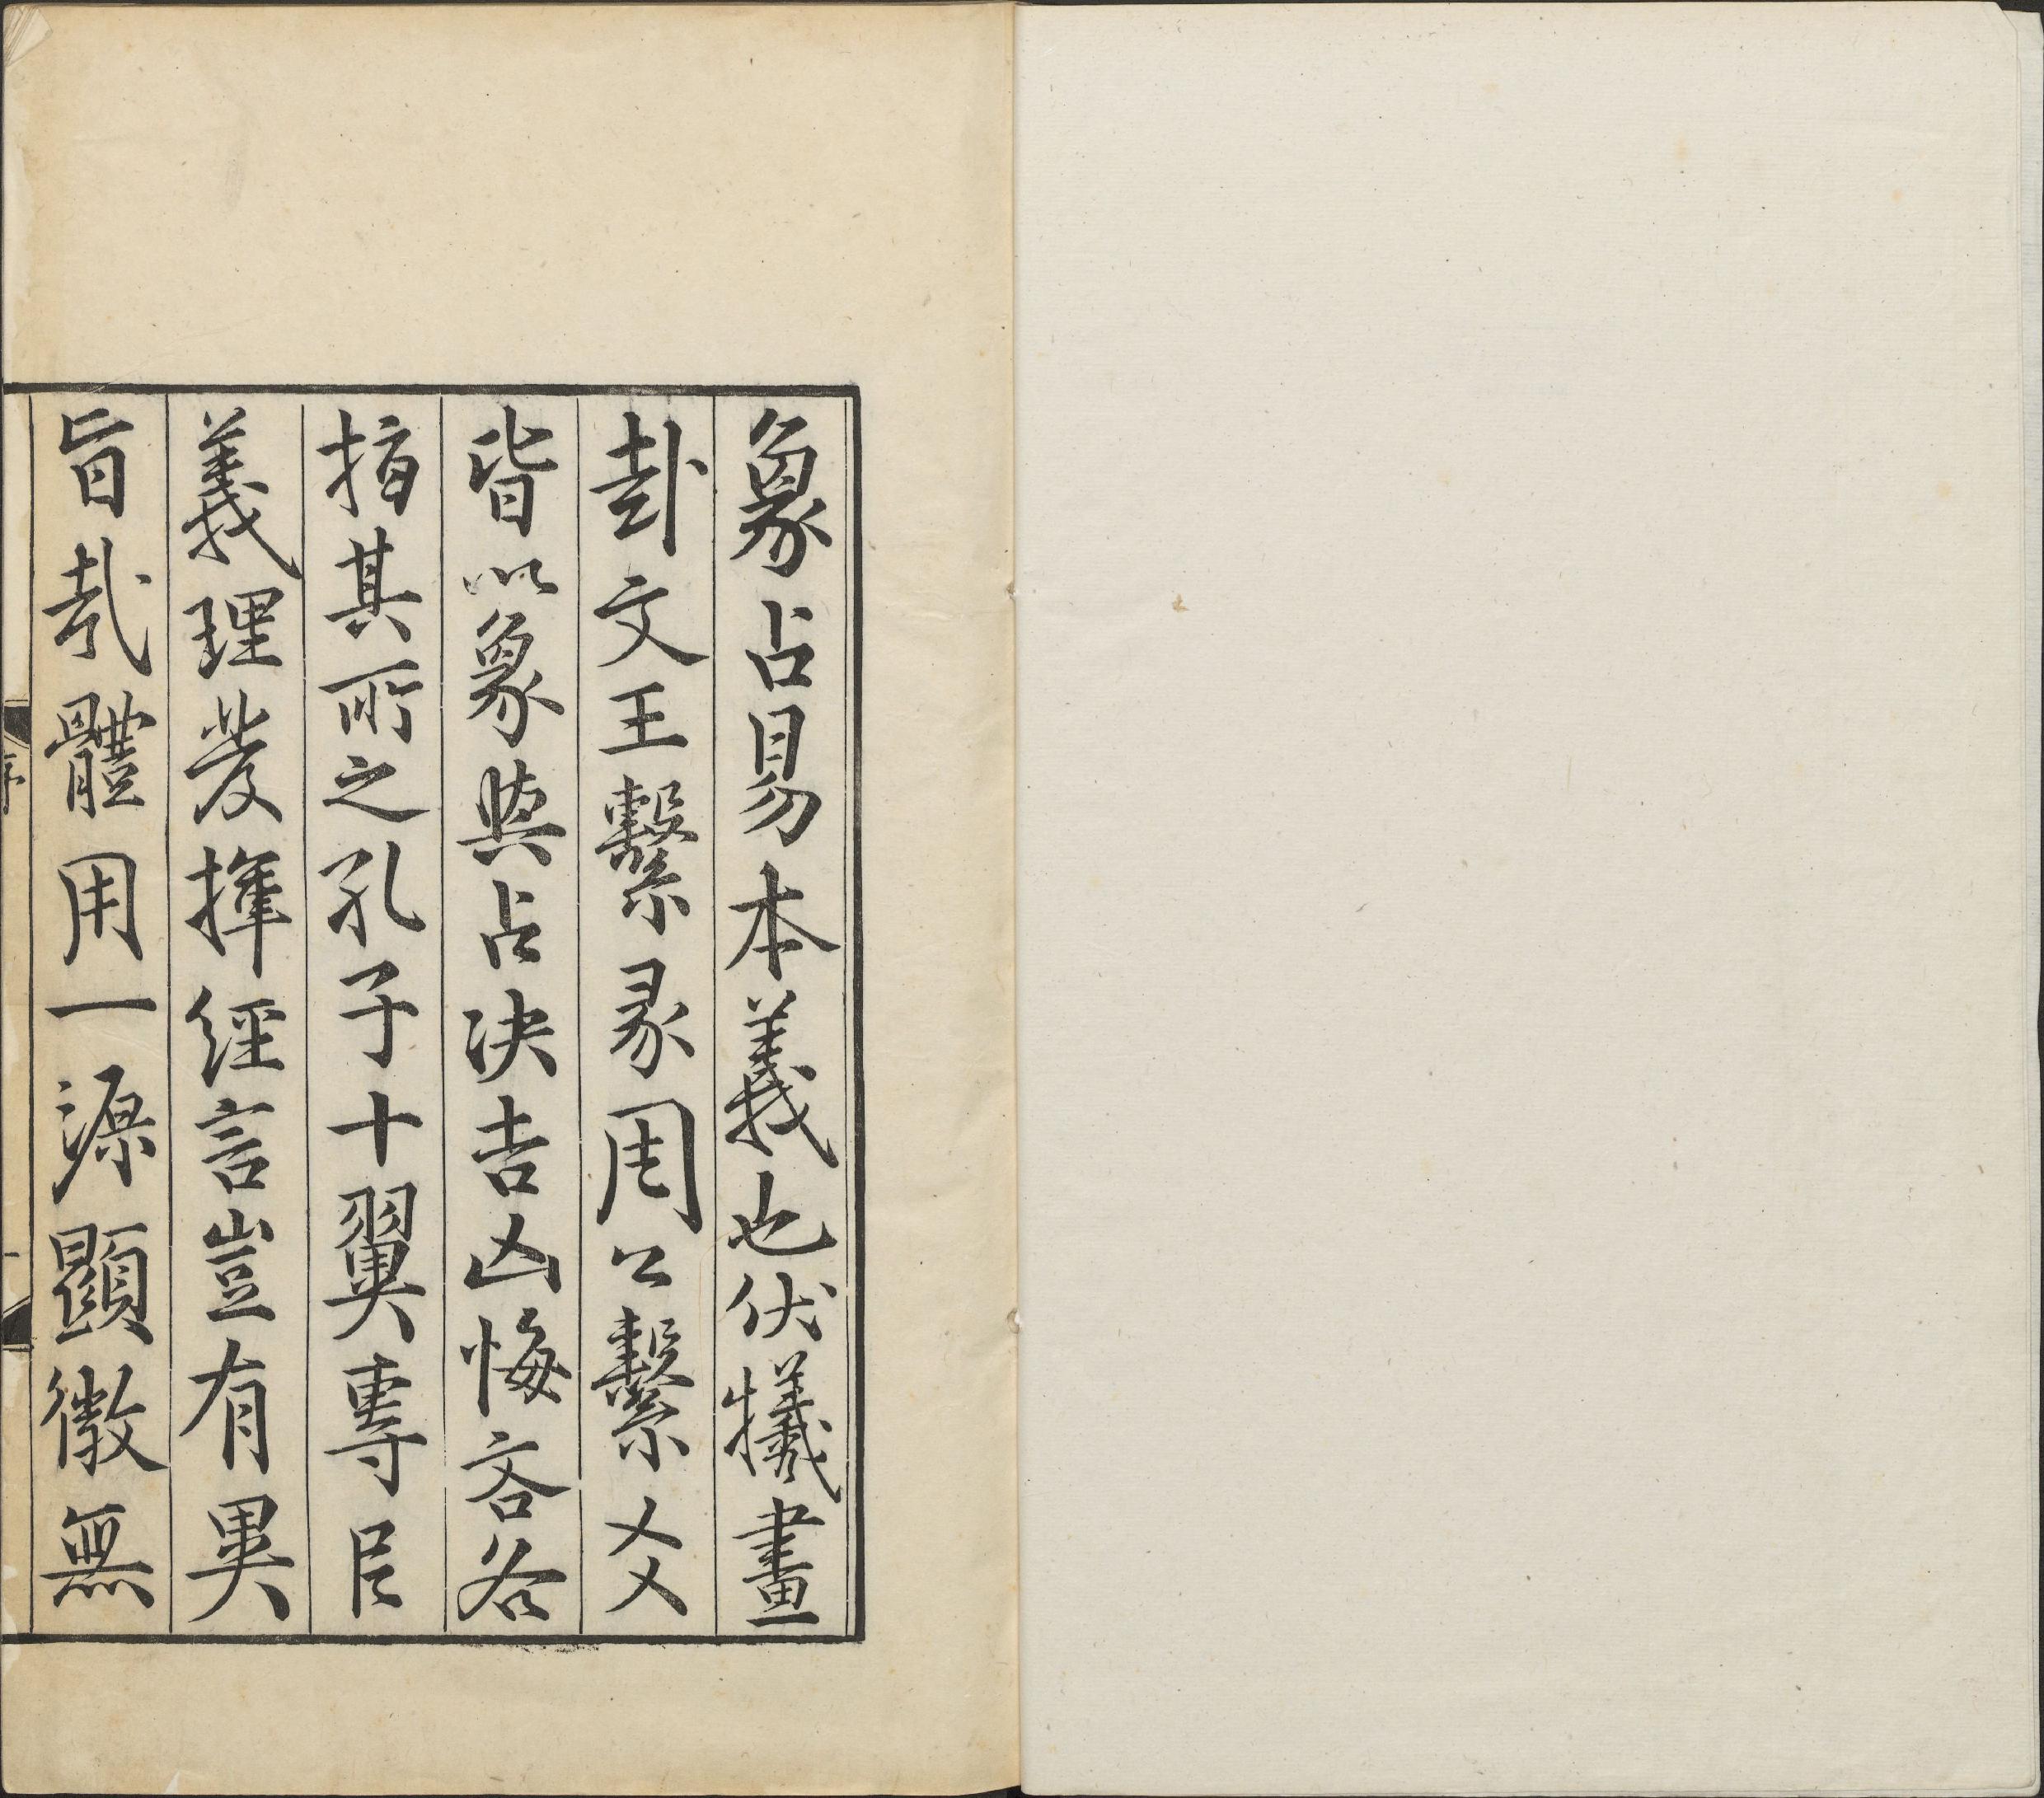 象占易本義也伏犧畫
卦文王繫彖周公繫爻
皆以象與占決吉凶悔吝各
指其所之孔子十翼專㠯
義理發揮經言豈有異
旨哉體用一源顯微無
序
一